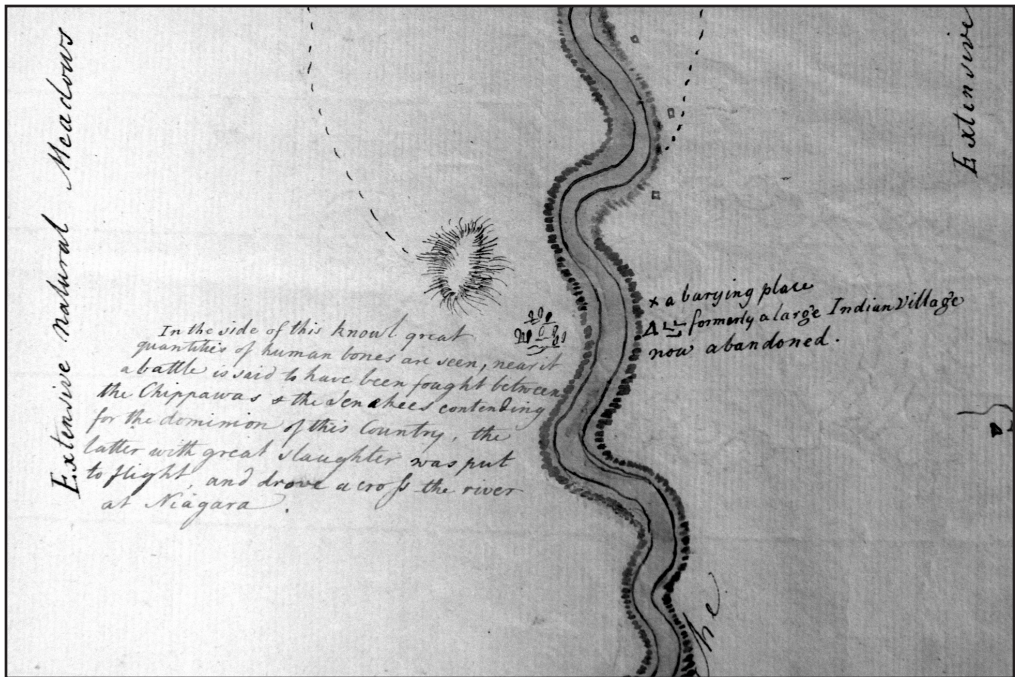 Extensive natural Meadows
In the side of this knowl great
quantities of human bones are seen, near it
a battle is said to have been fought between
the Chippawas & the Senakees contending
for the dominion of this Country, the
latter with great slaughter was put
to flight, and drove across the river
at Niagara.
x a burying place
formerly a large Indian Village
now abandoned.
Extensive
he